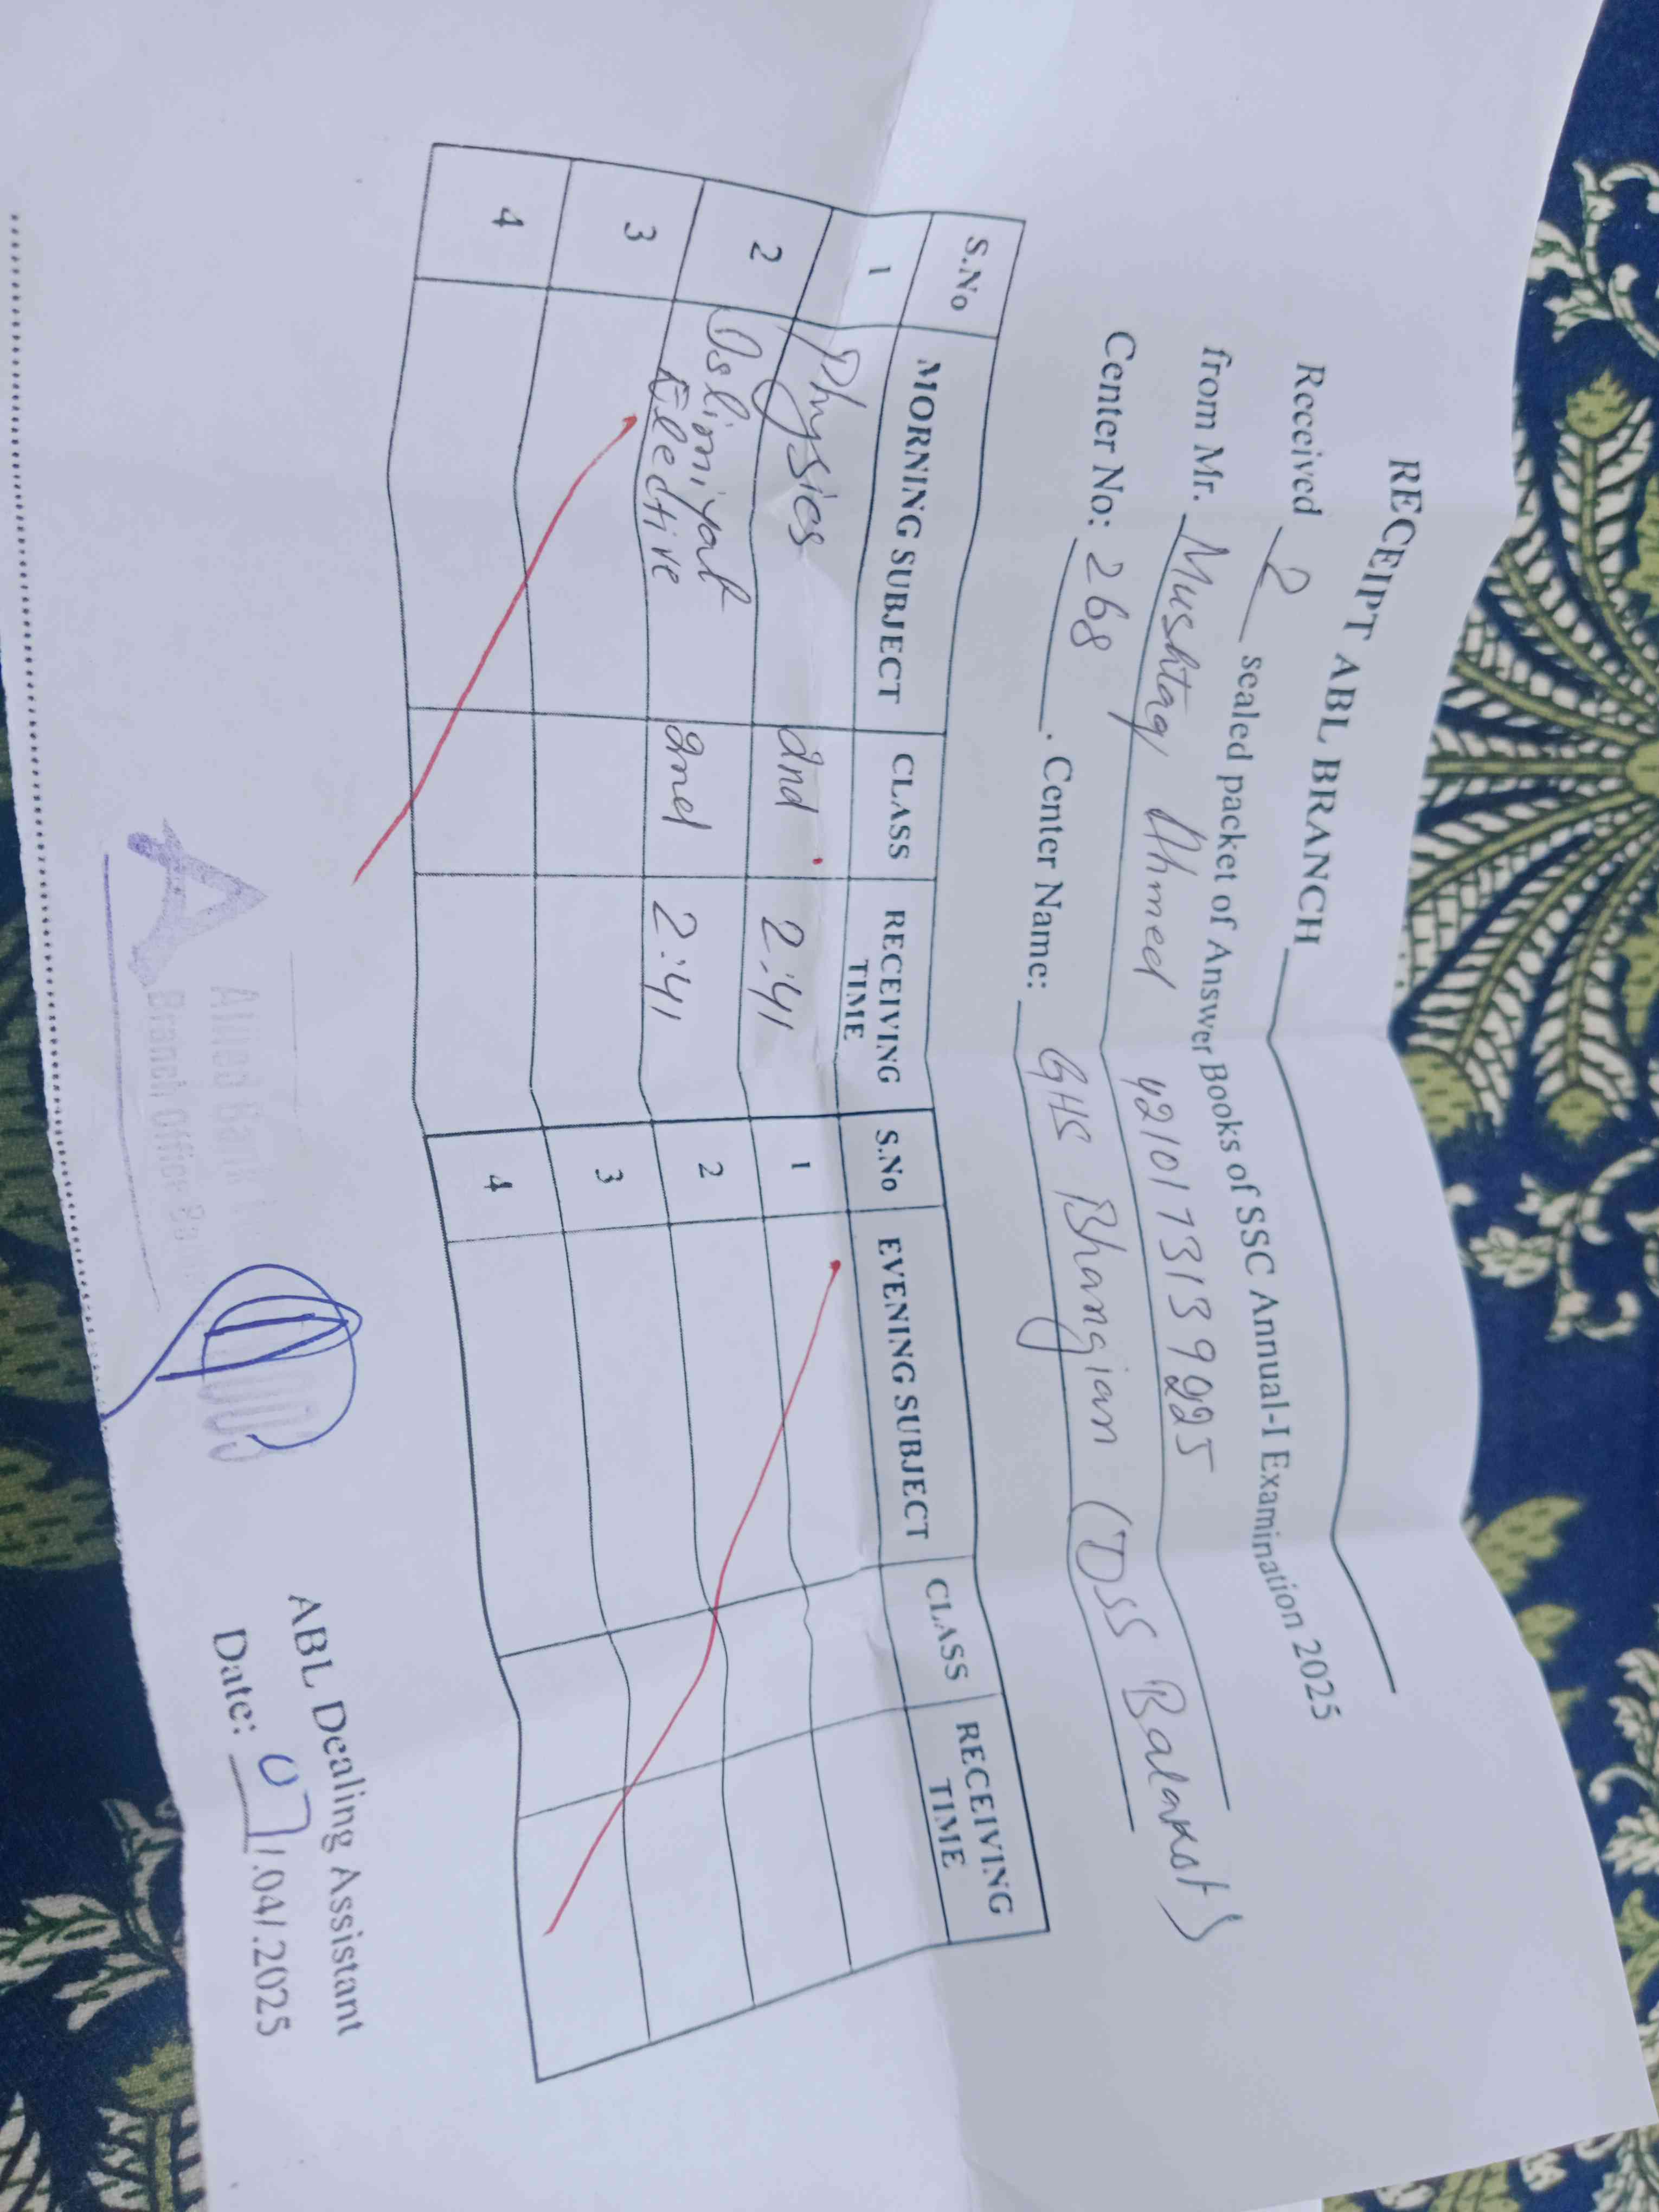 RECEIPT ABL BRANCH
Received 2 sealed packet of Answer Books of SSC Annual-I Examination 2025
from Mr. Mushtaq Ahmed 4210173139225
Center No: 268 . Center Name: GHS Bhangian (DSS Balakot)
S.No MORNING SUBJECT CLASS RECEIVING TIME S.No EVENING SUBJECT CLASS RECEIVING TIME
1 Physics 2nd 2:41 1
2 Islimiyat Elective 2nd 2:41 2
3 3
4 4
Allied Bank
Branch Office
ABL Dealing Assistant
Date: 07/.04/.2025